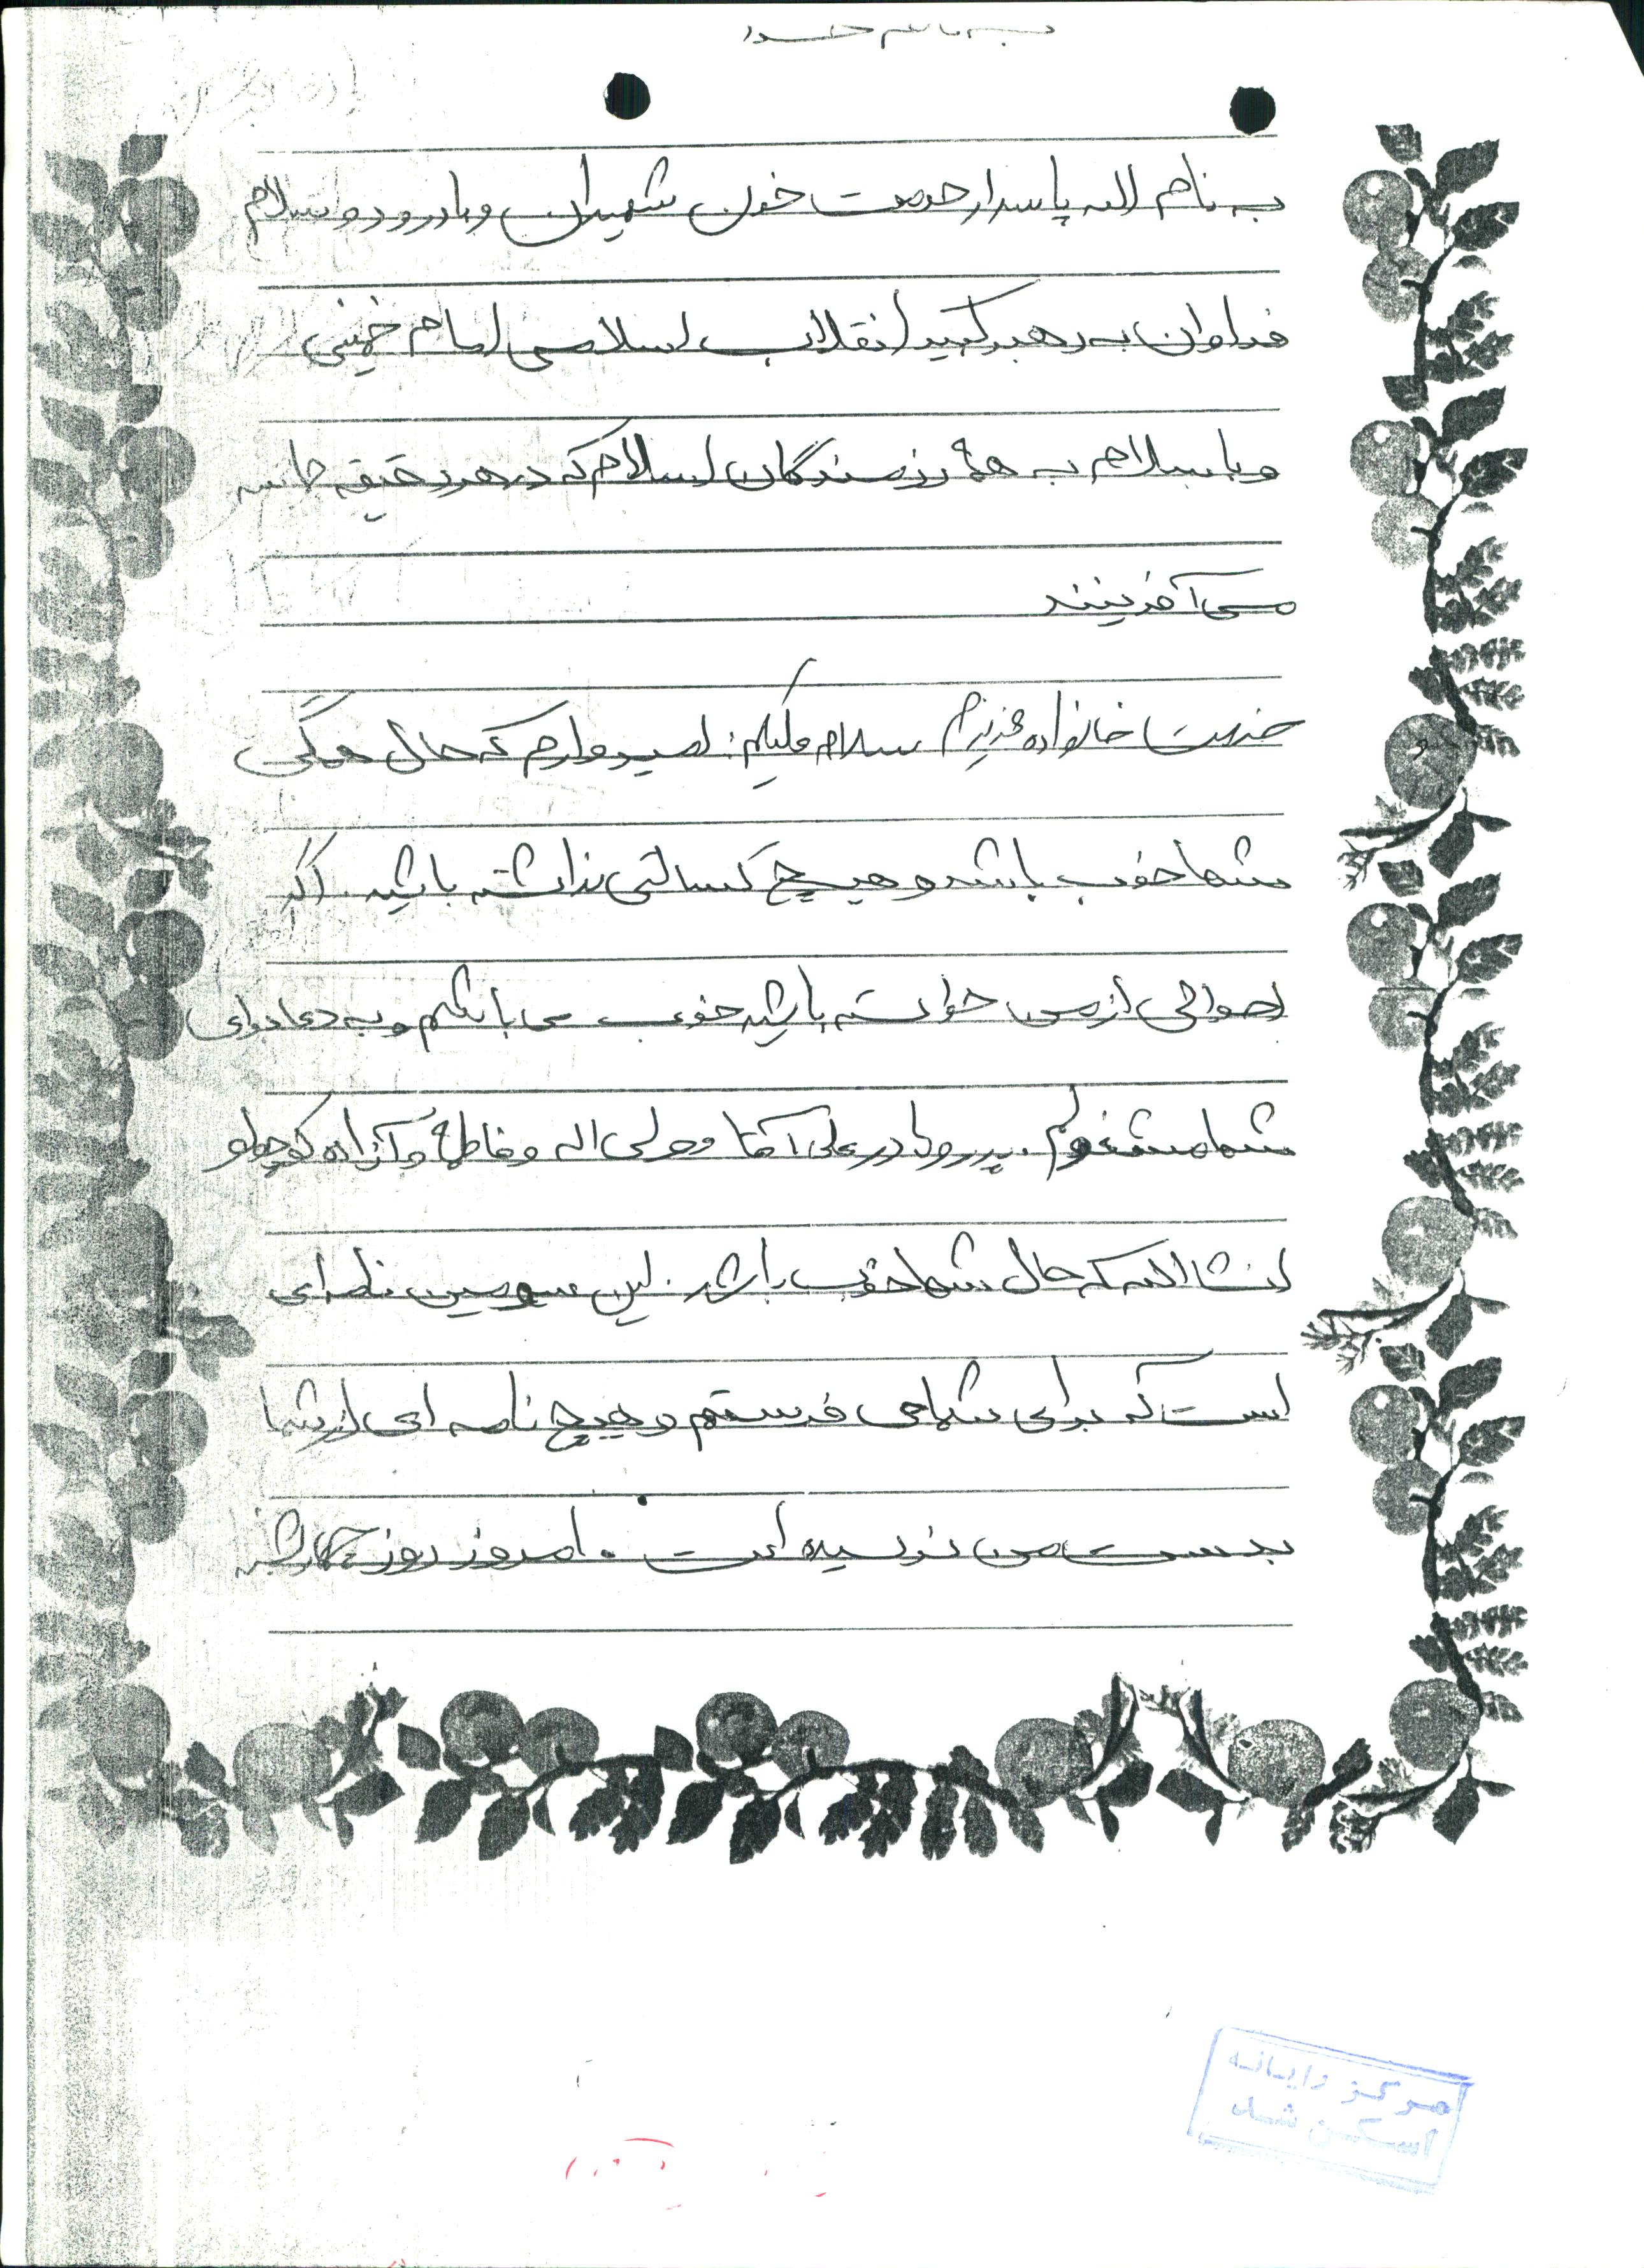 به نام خدا
به نام الله پاسدار حرمت خون شهیدان و با درود و سلام
فراوان به رهبر کبیر انقلاب اسلامی امام خمینی
و با سلام به همهٔ رزمندگان اسلام که در هر دقیقه حماسه
می آفرینند
خدمت خانواده عزیزم سلام علیکم. امیدوارم که حال همگی
شما خوب باشد و هیچ کسالتی نداشته باشید. اگر
احوالی از من خواسته باشید خوب می باشم و به دعا برای
شما مشغولم. پدر و مادر علی آقا و ولی اله و فاطمهٔ و آزاده کوچولو
انشاالله که حال شما خوب باشد. این سومین نامه ای
است که برای شما می فرستم و هیچ نامه ای از شما
بدست من نرسیده است. امروز روز چهارشنبه
مرکز رایانه
اسکن شد